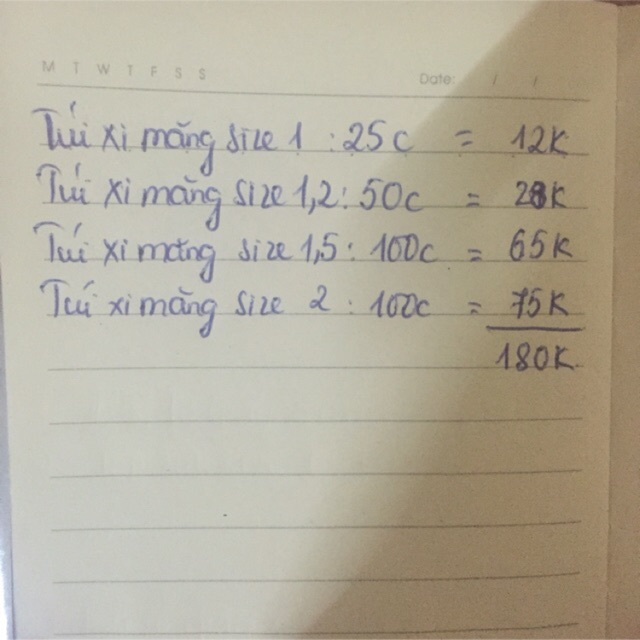 M T W T F S S Date: / /
Túi xi măng size 1 : 25c = 12K
Túi xi măng size 1,2 : 50c = 28K
Túi xi măng size 1,5 : 100c = 65K
Túi xi măng size 2 : 100c = 75K
180K